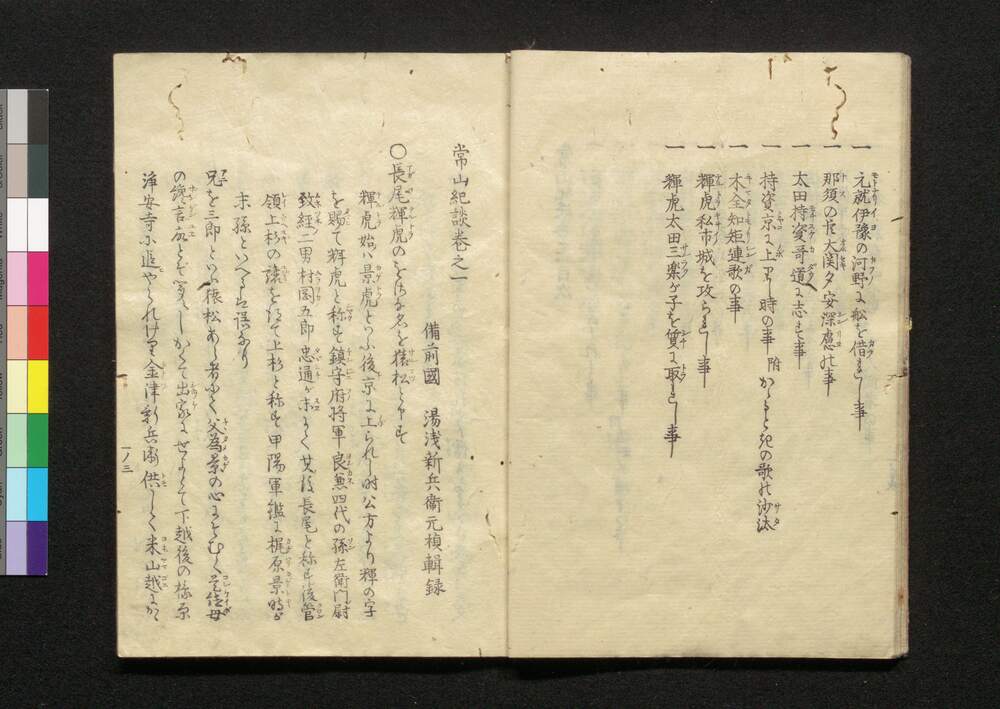 一 元就伊豫の河野に船を借られし事
一 那須の臣大関夕安深慮の事
一 太田持資哥道に志す事
一 持資京に上りし時の事 附 かるもら紀の歌の沙汰
一 木全知矩連歌の事
一 輝虎私市城を攻られし事
一 輝虎太田三楽が子を質に取れし事
常山紀談巻之一
備前國 湯浅新兵衞元禎輯録
〇長尾輝虎のをさな名を猿松と申す
輝虎始は景虎といふ後京に上られし時公方より輝の字
を賜て輝虎と称す鎮守府将軍良兼四代の孫左衛門尉
致經二男村岡五郎忠通が末にて其後長尾と称す後管
領上杉の譲を得て上杉と称す甲陽軍鑑に梶原景時が
末孫といへるは誤なり
兄を三郎といふ猿松あら者にて父為景の心にそむく
の讒言故とぞ しかくて出家にせよとて下越後の栃尾
浄安寺に追やられけり金津新兵衛供して米山越にか
一ノ三